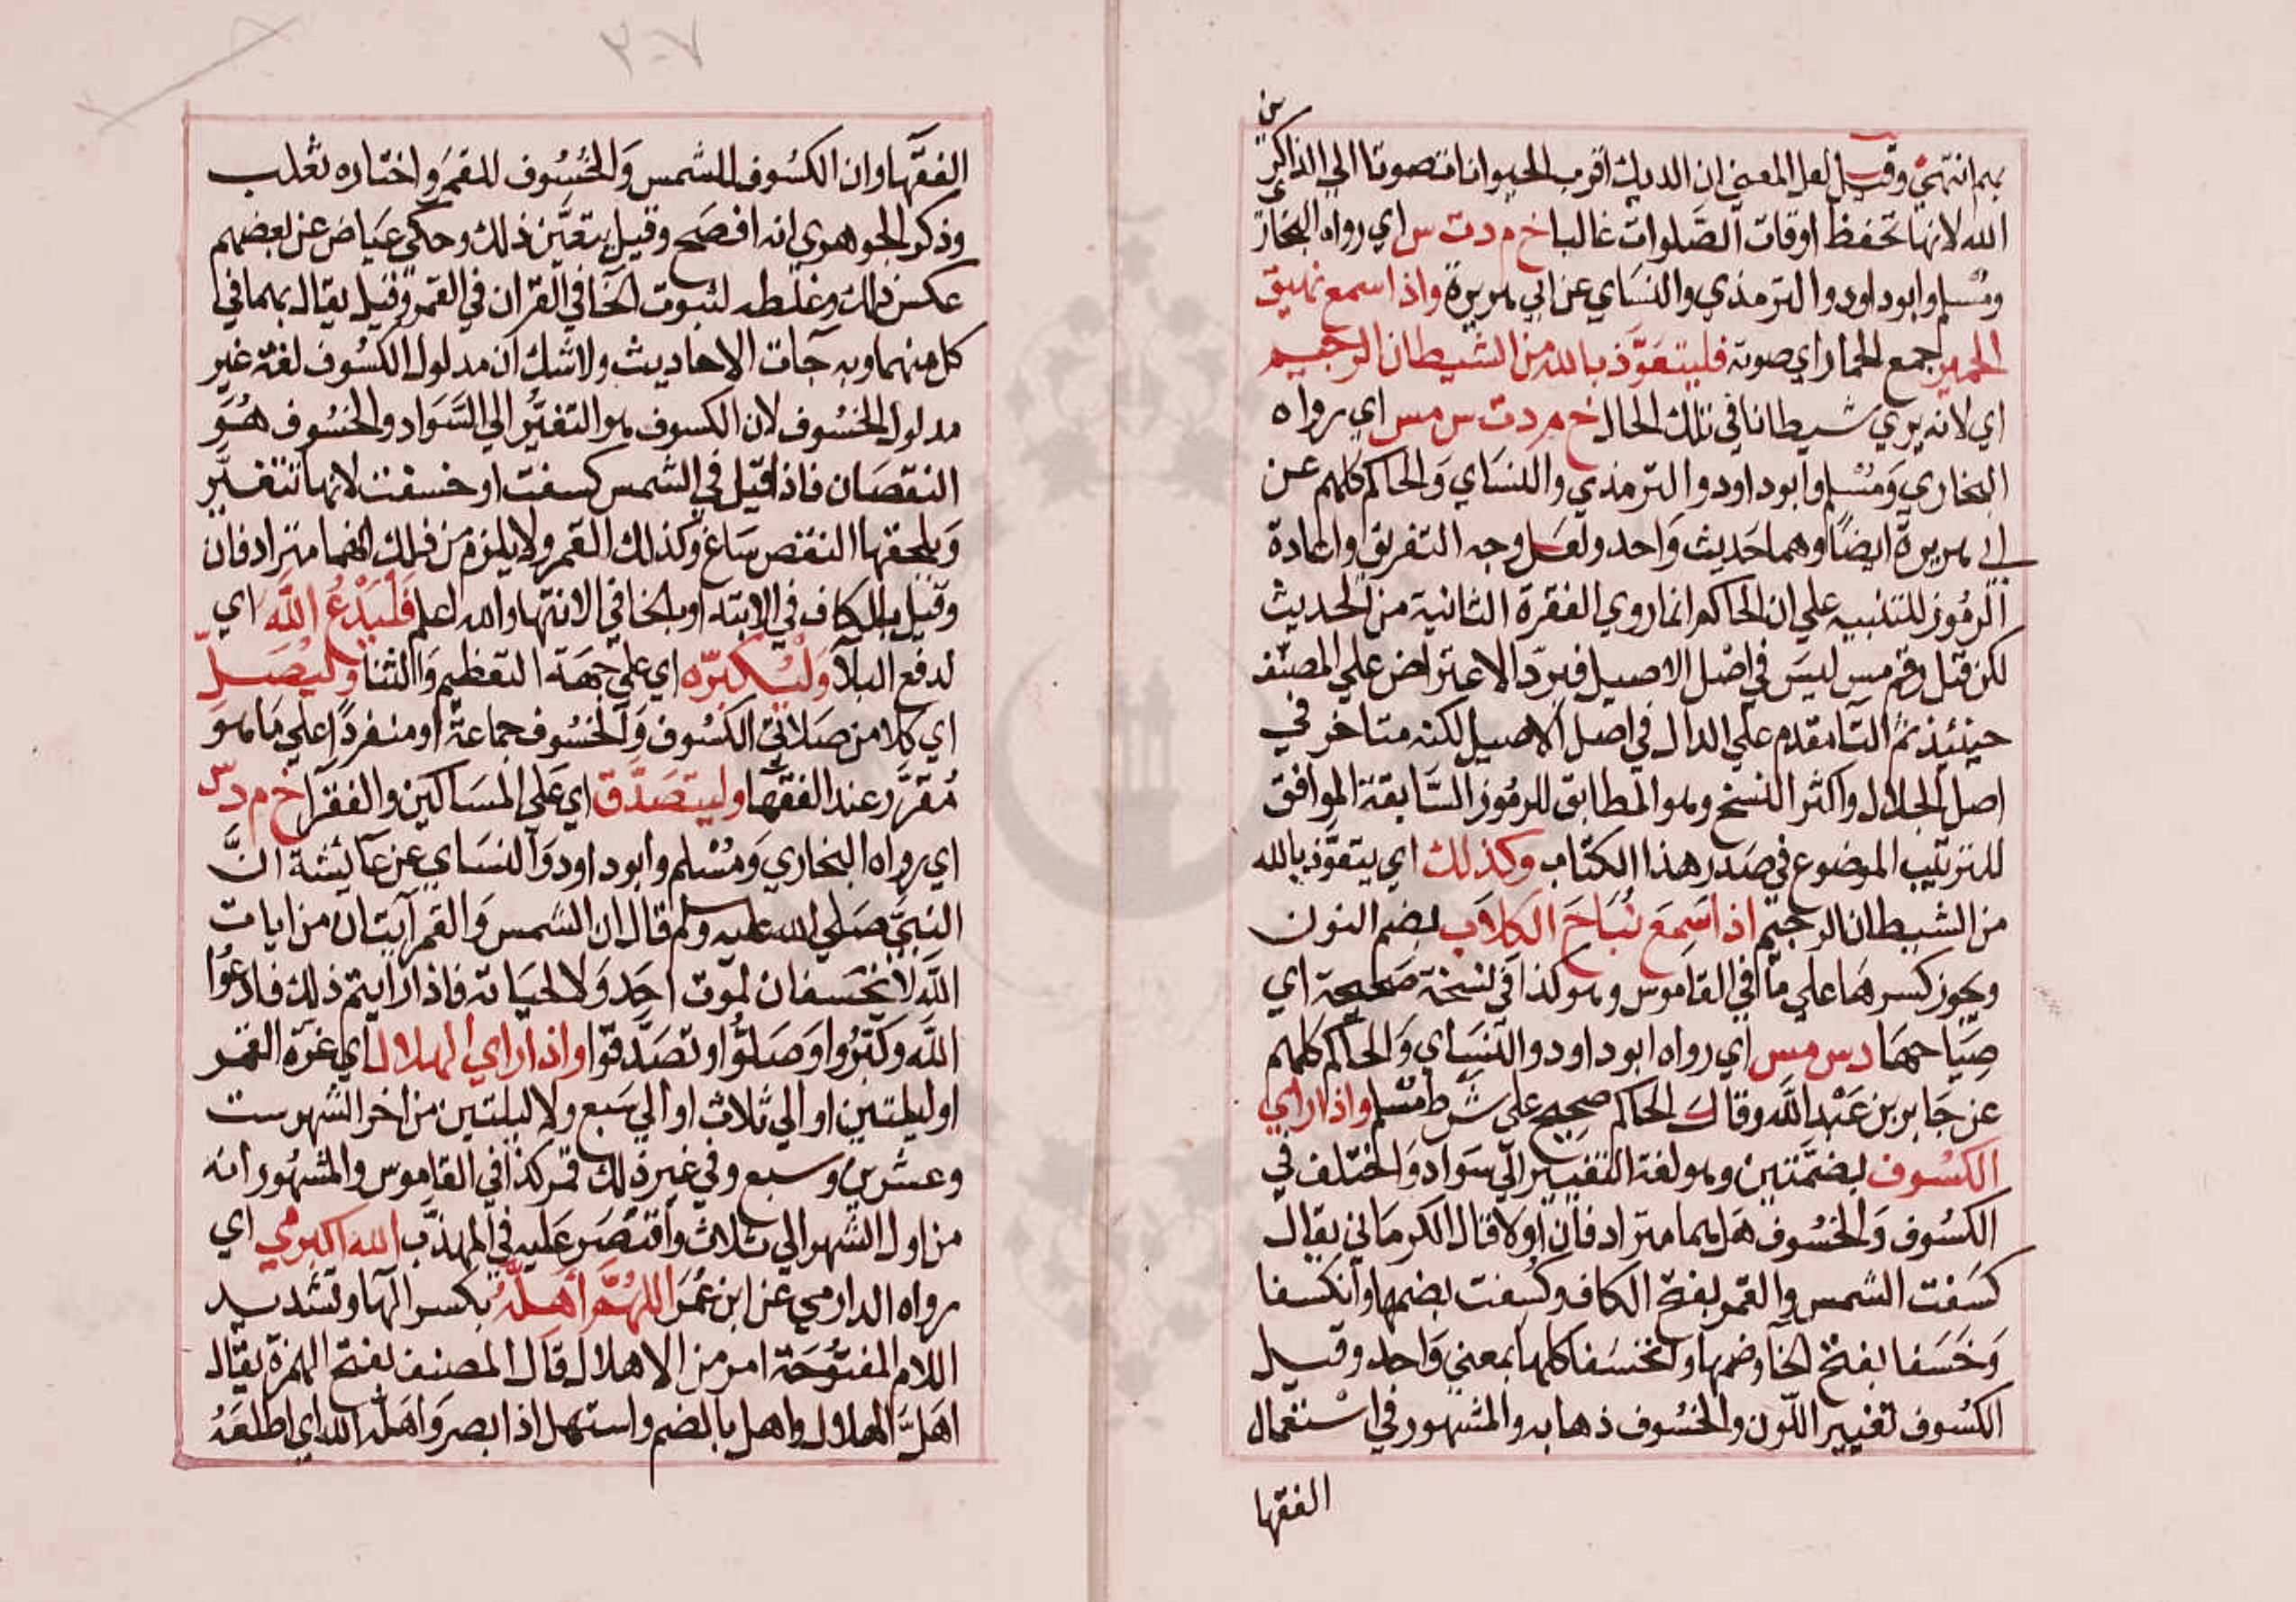 بهم انتهى وقيل لعل المعنى ان الديك اقرب الحيوانات صوتا الي الذاكرين
الله لانها تحفظ اوقات الصلوات غالبا خ م د ت س اي رواه البخاري
ومسلم وابو داود والترمذي والنساي عن ابي هريرة واذا سمع نهيق
الحمير جمع الحمار اي صوته فليتعوذ بالله من الشيطان الرجيم
اي لانه يري شيطانا في تلك الحال خ م د ت س مس اي رواه
البخاري ومسلم وابو داود والترمذي والنساي والحاكم كلهم عن
ابي هريرة ايضا وهما حديث واحد ولعل وجه التفريق واعادة
الرموز للتنبيه علي ان الحاكم انما روي الفقرة الثانية من الحديث
لكن قيل رقم مس ليس في اصل الاصيل فيرد الاعتراض علي المصنف
حينئذ ثم التا مقدم علي الدال في اصل الاصيل لكنه متاخر في
اصل الجلال واكثر النسخ وهو المطابق للرموز السابقة الموافق
للترتيب الموضوع في صدر هذا الكتاب وكذلك اي يتعوذ بالله
من الشيطان الرجيم اذا سمع نباح الكلاب بضم النون
ويجوز كسرها علي ما في القاموس وهو كذا في نسخة صحيحة اي
صياحها د س مس اي رواه ابو داود والنساي والحاكم كلهم
عن جابر بن عبد الله وقال الحاكم صحيح علي شرط مسلم واذا راي
الكسوف بضمتين وهو لغة التغيير الي سواد واختلف في
الكسوف والخسوف هل هما مترادفان اولا قال الكرماني يقال
كسفت الشمس والقمر بفتح الكاف وكسفت بضمها وانكسفا
وخسفا بفتح الخا وضمها وانخسفا كلها بمعني واحد وقيل
الكسوف تغيير اللون والخسوف ذهابه والمشهور في استعمال
الفقها
٢٠٧
الفقها وان الكسوف للشمس والخسوف للقمر واختاره ثعلب
وذكر الجوهوي انه افصح وقيل يتعين ذلك وحكي عياض عن بعضهم
عكس ذلك وغلطه لثبوت الخا في القران في القمر وقيل يقال بهما في
كل منهما وبه جات الاحاديث ولا شك ان مدلول الكسوف لغة غير
مدلول الخسوف لان الكسوف هو التغير الي السواد والخسوف هو
النقصان فاذا قيل في الشمس كسفت او خسفت لانها تتغير
ويلحقها النقص ساغ وكذلك القمر ولا يلزم من ذلك انهما مترادفان
وقيل بالكاف في الابتدا وبالخا في الانتها والله اعلم فليدع الله اي
لدفع البلا وليكبره اي علي جهة التعظيم والثنا وليصل
اي كلا من صلاتي الكسوف والخسوف جماعة او منفردا علي ما هو
مقرر عند الفقها وليتصدق اي علي المساكين والفقرا خ م د س
اي رواه البخاري ومسلم وابو داود والنساي عن عايشة ان
النبي صلي الله عليه وسلم قال ان الشمس والقمر آيتان من ايات
الله لا يخسفان لموت احد ولا لحياته فاذا رايتم ذلك فادعوا
الله وكبروا وصلوا وتصدقوا واذا راي الهلال اي غرة القمر
او ليلتين او الي ثلاث او الي سبع ولليلتين من اخر الشهر ست
وعشرين وسبع وفي غير ذلك قمر كذا في القاموس والمشهور انه
من اول الشهر الي ثلاث واقتصر عليه في المهذب الله اكبر مي اي
رواه الدارمي عن ابن عمر اللهم اهله بكسر الها وتشديد
اللام المفتوحة امر من الاهلال قال المصنف بفتح الهمزة يقال
اهل الهلال واهل بالضم واستهل اذا ابصر واهله الله اي اطلعه